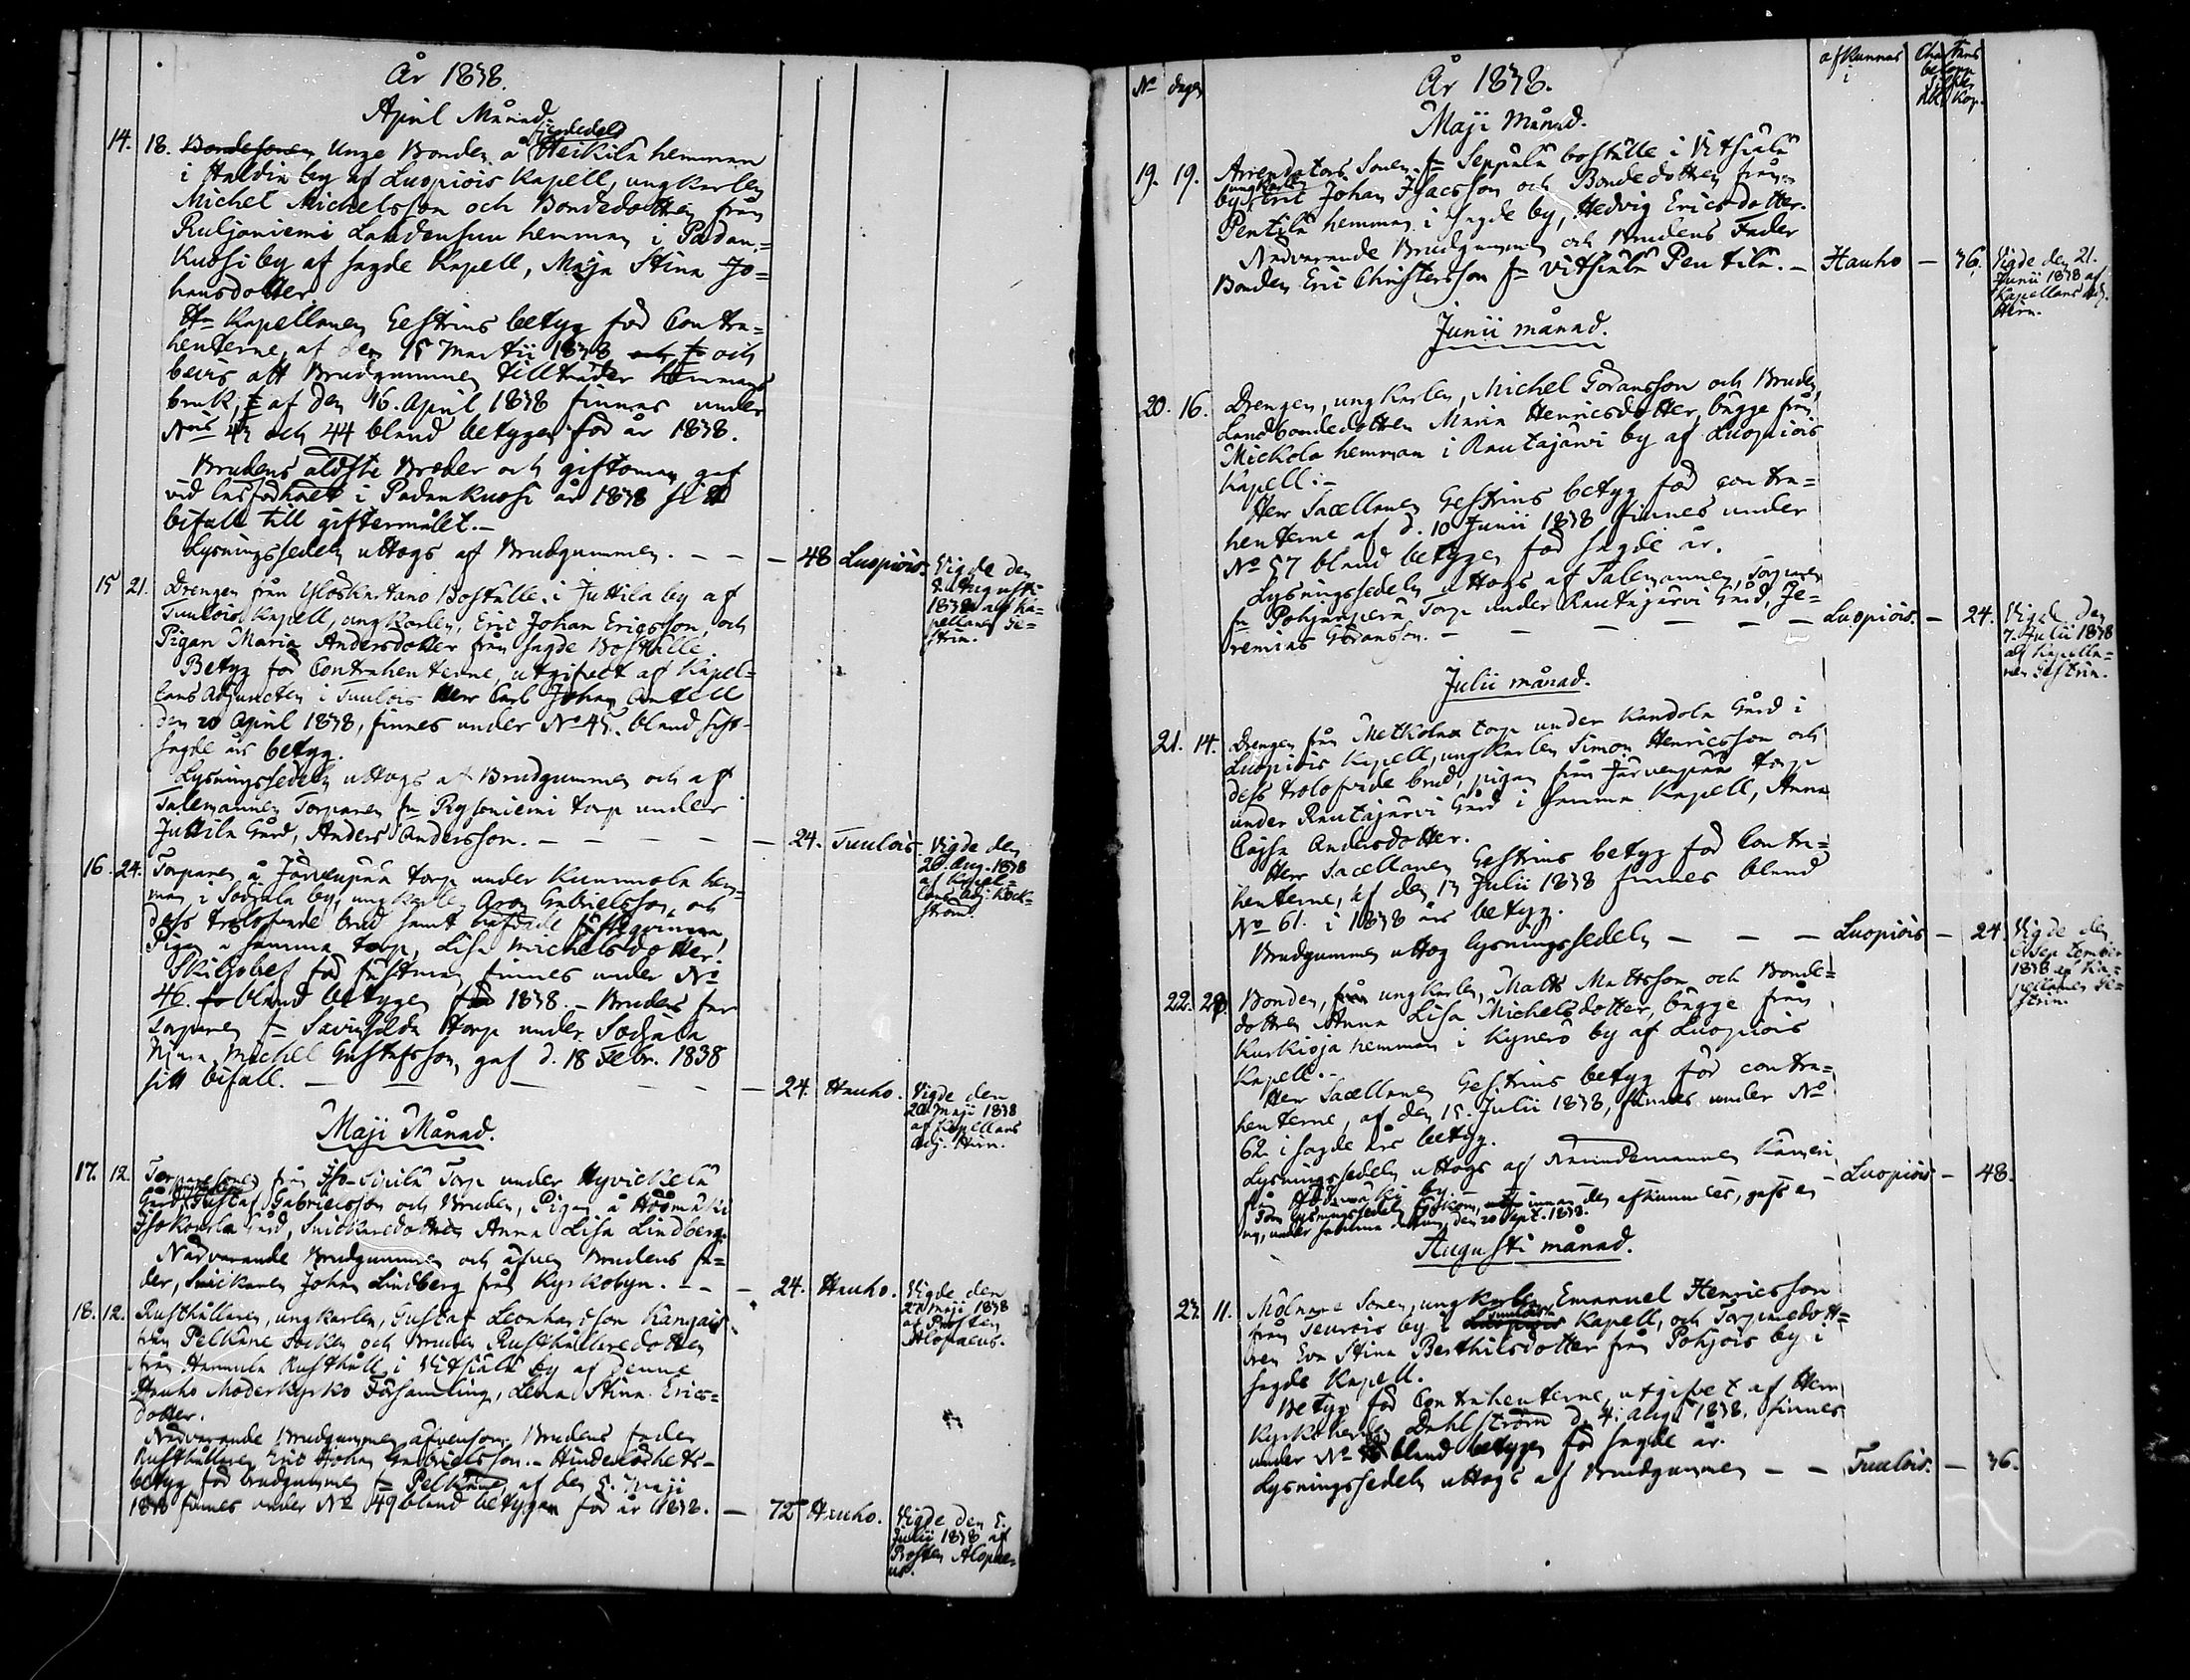 År 1838.
April Månad.
14. 18. Bondesonen Unge Bonden å fjerdedels Heikilä hemman
i Haldia by af Luopiois Kapell, ungkarlen
Michel Michelsson och Bondedottren från
Ruljoniemi Laudensuu hemman i Padan=
kuosi by af sagde Kapell, Maja Stina Jo=
hansdotter
Hr Kapellanen Gestrins betyg för Contra=
henterne, af den 15 Martii 1838 och
bevis att Brudgummen tillträder hemmans
bruk, af den 16. April 1838 finnes under
Nris 43 och 44 bland betygen för år 1838.
Brudens äldste Broder och giftoman gaf
vid läsförhöret i Padankuosi år 1838 sitt
bifall till giftermålet.-
Lysningssedeln uttogs af Brudgummen. - - - 48 Luopiois. Vigde den
Augusti
1838 af Ka=
pellanen Ge=
strin.
15 21. Drengen från Yloskartano Boställe i Juttila by af
Tuulois Kapell, ungkarlen, Eric Johan Ericsson, och
Pigan Maria Andersdotter från sagde Boställe.
Betyg för Contrahenterne, utgifvet af Kapel=
lans Adjuncten i Tuulois Herr Carl Johan Antell
den 20 April 1838, finnes under No 45. bland sist=
sagde års betyg.
Lysningssedeln uttogs af Brudgummen och af
Talemannen Torparen fr Rysoniemi torp under
Juttila Gård, Anders Andersson. - - - - - 24. Tuulois. Vigde den
20. Aug. 1838
af Kapel=
lans Adj. Heck=
ström.
16. 24. Torparen å Järvenpää torp under Kummola hem=
man i Sodjala by, ungkarlen Aron Gabrielsson, och
dess trolofvade brud samt häfdade fästeqvinna,
Pigan å samma torp, Lisa Michelsdotter.
Skiljobref för fästman finnes under No
46. bland betygen för 1838. - Brudens far
torparen fr Savisilda torp under Sodjala
Michel Gustafsson, gaf d. 18 Febr. 1838
sitt bifall. - - - - - - 24. Hauho. Vigde den
20 Maji 1838
af Kapellans
Adj. Hirn.
Maji Månad.
17. 12. Torparesonen från Iso-Sipilä Torp under Hyvickelä
Gård, ungkarlen Gustaf Gabrielsson och Bruden, Pigan å Hoomäki
Isokourla Gård, Snickaredottren Anna Lisa Lindberg.
Närvarande Brudgummen och äfven Brudens fa=
der, Snickaren Johan Lindberg från Kyrkobyn. - - - 24. Hauho. Vigde den
27 Maji 1838
af Prosten
Alopaeus.
18. 12. Rusthållaren, ungkarlen, Gustaf Leonhardsson Kangais
från Pelkäne Socken och Bruden Rusthållaredottren
från Hannula Rusthåll i Vitsiälä by af denne
Hauho Moderkyrko Församling, Lena Stina Erics=
dotter.
Närvarande Brudgummen äfvensom Brudens fader
Rusthållaren Eric Johan Gabrielsson. - Hinderlöshets=
betyg för brudgummen fr Pelkäne af den 5. Maji
1838 finnes under No 49 bland betygen för år 1838. - 72 Hauho. Vigde den 5.
Julii 1838 af
Prosten Alopae=
us.
No dagen År 1838. afkunnas
i
Maji Månad.
19. 19. Arrendators Sonen fr Seppälä boställe i Vitsiälä
by ungkarlen Eric Johan Isacsson och Bondedottren från
Pentilä hemman i sagde by, Hedvig Ericsdotter.
Närvarande Brudgummen och Brudens Fader
Bonden Eric Christersson fr Vitsiälä Pentilä. - Hauho - 36. Vigde den 21.
Junii 1838 af
Kapellans Adj.
Hirn.
Junii månad.
20. 16. Drengen, ungkarlen, Michel Göransson och Bruden,
Landbondedottren Maria Henricsdotter, bägge från
Mickola hemman i Rautajärvi by af Luopiois
Kapell. -
Herr Sacellanen Gestrins betyg för contra=
henterne af d. 10 Junii 1838 finnes under
No 57 bland betygen för sagde år.
Lysningssedeln uttogs af Talemannen, Torparen
fr Pohjanperä Torp under Rautajärvi Gård, Je=
remias Göransson. - - - - - - Luopiois. - 24. Vigde den
7. Julii 1838
af Kapella=
nen Gestrin.
Julii månad.
21. 14. Drengen från Metkola torp under Kandola Gård i
Luopiois Kapell, ungkarlen Simon Henricsson och
dess trolofvade brud, pigan från Järvenpää torp
under Rautajärvi Gård i samma Kapell, Anna
Cajsa Andersdotter.
Herr Sacellanen Gestrins betyg för Contra=
henterne, af den 13 Julii 1838 finnes bland
No 61. i 1838 års betyg.
Brudgummen uttog lysningssedeln - - - Luopiois - 24 Vigde den
September
1838 af Ka=
pellanen Ge=
strin.
22. 28. Bonden, ungkarlen, Matts Mattsson och Bonde=
dottren Anna Lisa Michelsdotter, bägge från
Kurkioja hemman i Kynerö by af Luopiois
Kapell. -
Herr Sacellanen Gestrins betyg för contra=
henterne, af den 15. Julii 1838, finnes under No
62 i sagde års betyg.
Lysningssedeln uttogs af Nämndemannen
från by. - Luopiois - 48.
Som lysningssedeln förkom, innan den afkunnades, gafs en
ny, under samma datum, den 20 Sept. 1838.
Augusti månad.
23. 11. Mölnare Sonen, ungkarlen Emanuel Henricsson
från Teurois by i Tuulois Kapell, och Torparedott=
ren Eva Stina Berthilsdotter från Pohjois by i
sagde Kapell.
Betyg för Contrahenterne, utgifvet af Herr
Kyrkoherden Dahlström d. 4. Aug. 1838. finnes
under No bland betygen för sagde år.
Lysningssedeln uttogs af Brudgummen - - Tuulois. - 36.